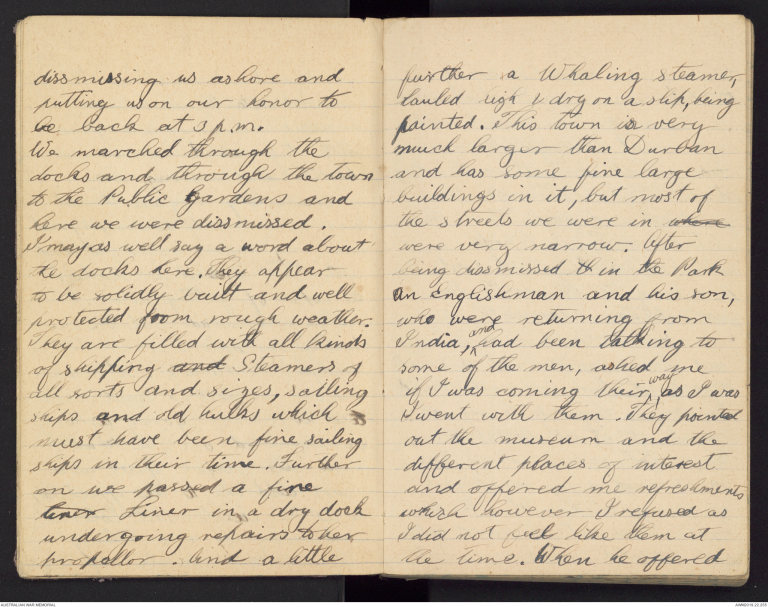 dissmissing us ashore and
putting us on our honor to
be back at 3 p.m.
We marched through the
docks and through the town
to the Public Gardens and
here we were dissmissed.
I may as well say a word about
the docks here. They appear
to be solidly built and well
protected from rough weather.
They are filled with all kinds
of shipping and Steamers of
all sorts and sizes, sailing
ships and old hulks which
must have been fine sailing
ships in their time. Further
on we passed a fine
liner Liner in a dry dock
undergoing repairs to her
propellor. And a little
further a Whaling steamer,
hauled high & dry on a slip, being
painted. This town is very
much larger than Durban
and has some fine large
buildings in it, but most of
the streets we were in where
were very narrow. After
being dissmissed in the Park
an Englishman and his son,
who were returning from
India, and had been talking to
some of the men, asked me
if I was coming their way, as I was
I went with them. They pointed
out the museum and the
different places of interest
and offered me refreshments
which however I refused as
I did not feel like them at
the time. When he offered
AUSTRALIAN WAR MEMORIAL